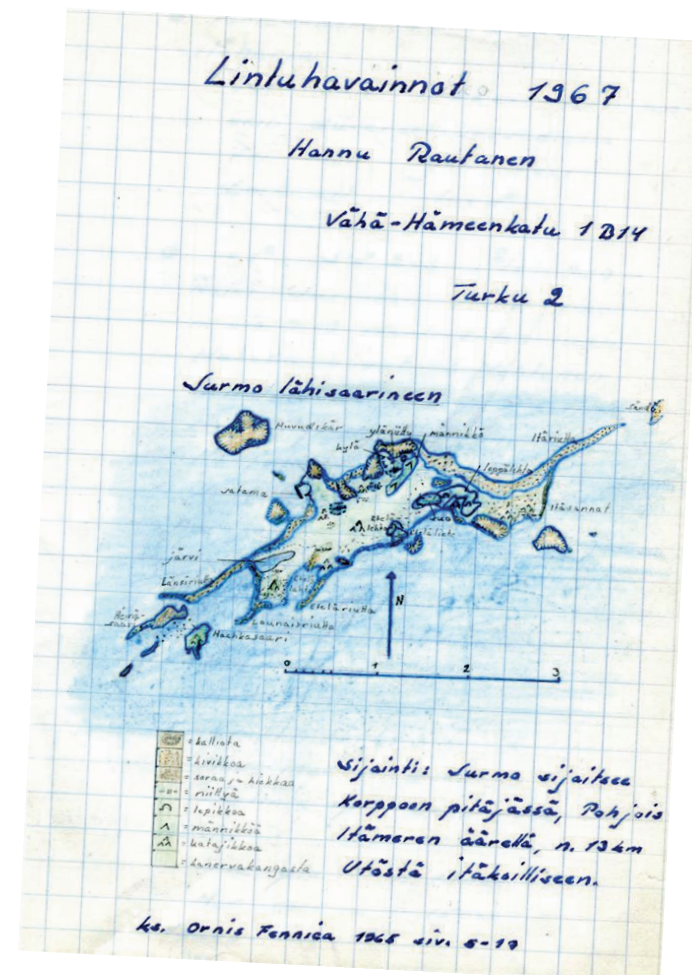 Lintuhavainnot 1967
Hannu Rautanen
Vähä-Hämeenkatu 1 B 14
Turku 2
Jurmo lähisaarineen
kylä
männikkö
Itäriutta
satama
Itäsannat
suo
järvi
Länsiriutta
Eteläriutta
Lounaisriutta
Haahkasaari
N
0 1 2 3
= kalliota
= kivikkoa
= soraa ja hiekkaa
= niittyä
= lepikkoa
= männikköä
= katajikkoa
= kanervakangasta
Sijainti: Jurmo sijaitsee
Korppoon pitäjässä, Pohjois
Itämeren äärellä, n. 13 km
Utöstä itäkoilliseen.
ks. Ornis Fennica 1965 siv. 5-19